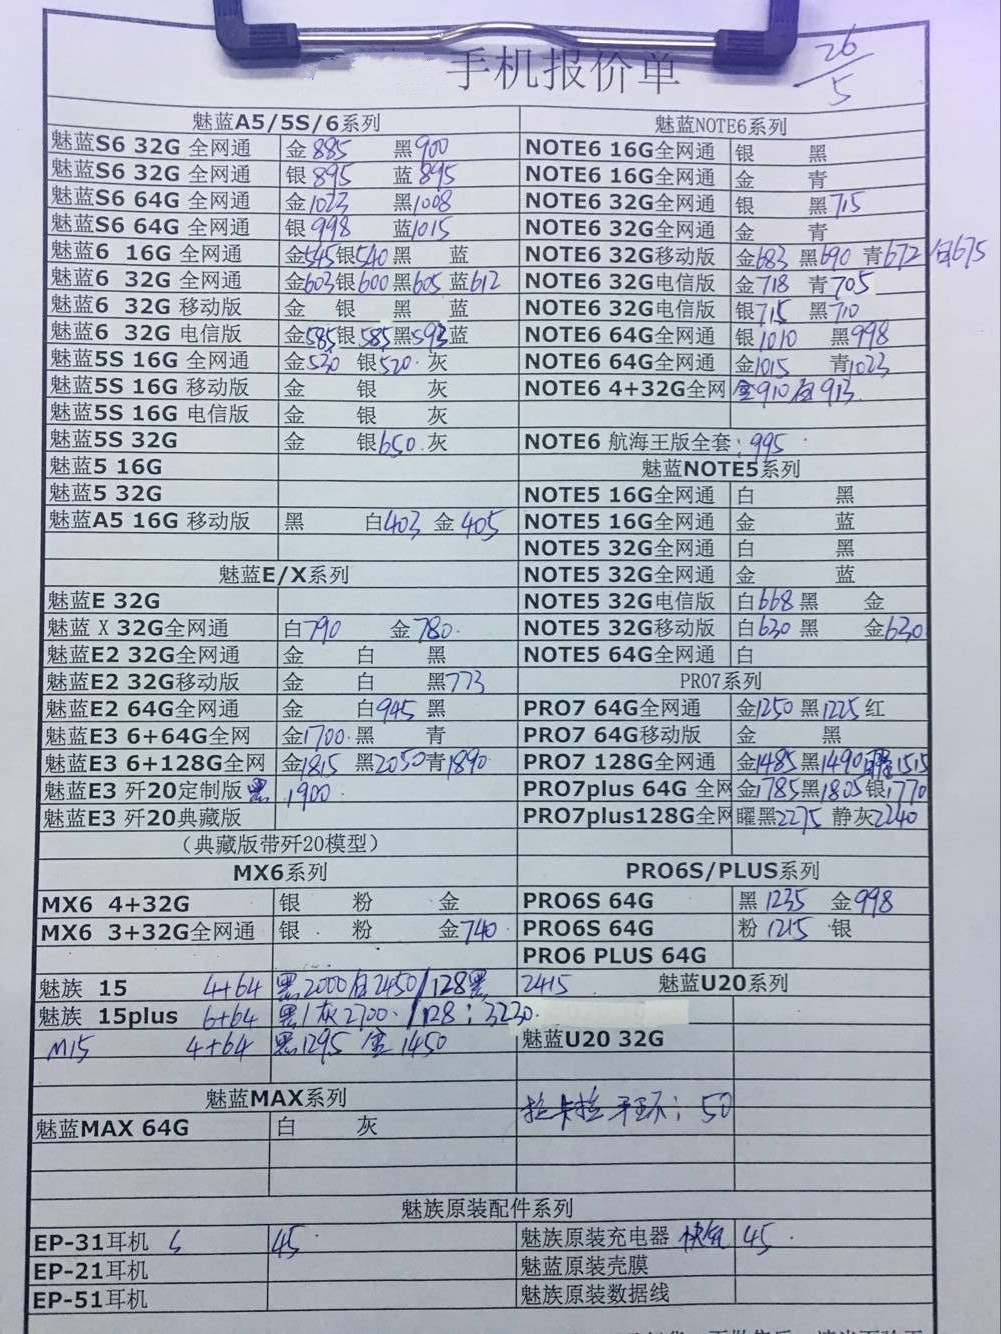 手机报价单
26/5
魅蓝A5/5S/6系列
魅蓝S6 32G 全网通 金885 黑900
魅蓝S6 32G 全网通 银895 蓝895
魅蓝S6 64G 全网通 金1023 黑1008
魅蓝S6 64G 全网通 银998 蓝1015
魅蓝6 16G 全网通 金545银540黑 蓝
魅蓝6 32G 全网通 金603银600黑605 蓝612
魅蓝6 32G 移动版 金 银 黑 蓝
魅蓝6 32G 电信版 金585银585黑593蓝
魅蓝5S 16G 全网通 金530 银520 灰
魅蓝5S 16G 移动版 金 银 灰
魅蓝5S 16G 电信版 金 银 灰
魅蓝5S 32G 金 银650 灰
魅蓝5 16G
魅蓝5 32G
魅蓝A5 16G 移动版 黑 白403 金405
魅蓝E/X系列
魅蓝E 32G
魅蓝 X 32G全网通 白790 金780
魅蓝E2 32G全网通 金 白 黑
魅蓝E2 32G移动版 金 白 黑773
魅蓝E2 64G全网通 金 白945 黑
魅蓝E3 6+64G全网 金1700 黑 青
魅蓝E3 6+128G全网 金1815 黑2050青1890
魅蓝E3 歼20定制版 黑 1900
魅蓝E3 歼20典藏版
（典藏版带歼20模型）
MX6系列
MX6 4+32G 银 粉 金
MX6 3+32G全网通 银 粉 金740
魅族 15 4+64 黑2000白2450/128黑 2415
魅族 15plus 6+64 黑/灰2700 /128：3230
M15 4+64 黑1295 金1450
魅蓝MAX系列
魅蓝MAX 64G 白 灰
魅蓝NOTE6系列
NOTE6 16G全网通 银 黑
NOTE6 16G全网通 金 青
NOTE6 32G全网通 银 黑715
NOTE6 32G全网通 金 青
NOTE6 32G移动版 金683 黑690 青672 白675
NOTE6 32G电信版 金718 青705
NOTE6 32G电信版 银715 黑710
NOTE6 64G全网通 银1010 黑998
NOTE6 64G全网通 金1015 青1023
NOTE6 4+32G全网 金910 白913
NOTE6 航海王版全套：995
魅蓝NOTE5系列
NOTE5 16G全网通 白 黑
NOTE5 16G全网通 金 蓝
NOTE5 32G全网通 白 黑
NOTE5 32G全网通 金 蓝
NOTE5 32G电信版 白668 黑 金
NOTE5 32G移动版 白630 黑 金630
NOTE5 64G全网通 白
PRO7系列
PRO7 64G全网通 金1250 黑1225 红
PRO7 64G移动版 金 黑
PRO7 128G全网通 金1485黑1490 1515
PRO7plus 64G 全网 金1785黑1805银1770
PRO7plus128G全网 曜黑2275 静灰2240
PRO6S/PLUS系列
PRO6S 64G 黑1235 金998
PRO6S 64G 粉1215 银
PRO6 PLUS 64G
魅蓝U20系列
魅蓝U20 32G
拉卡拉手环：50
魅族原装配件系列
EP-31耳机 45
EP-21耳机
EP-51耳机
魅族原装充电器 快充 45
魅蓝原装壳膜
魅族原装数据线